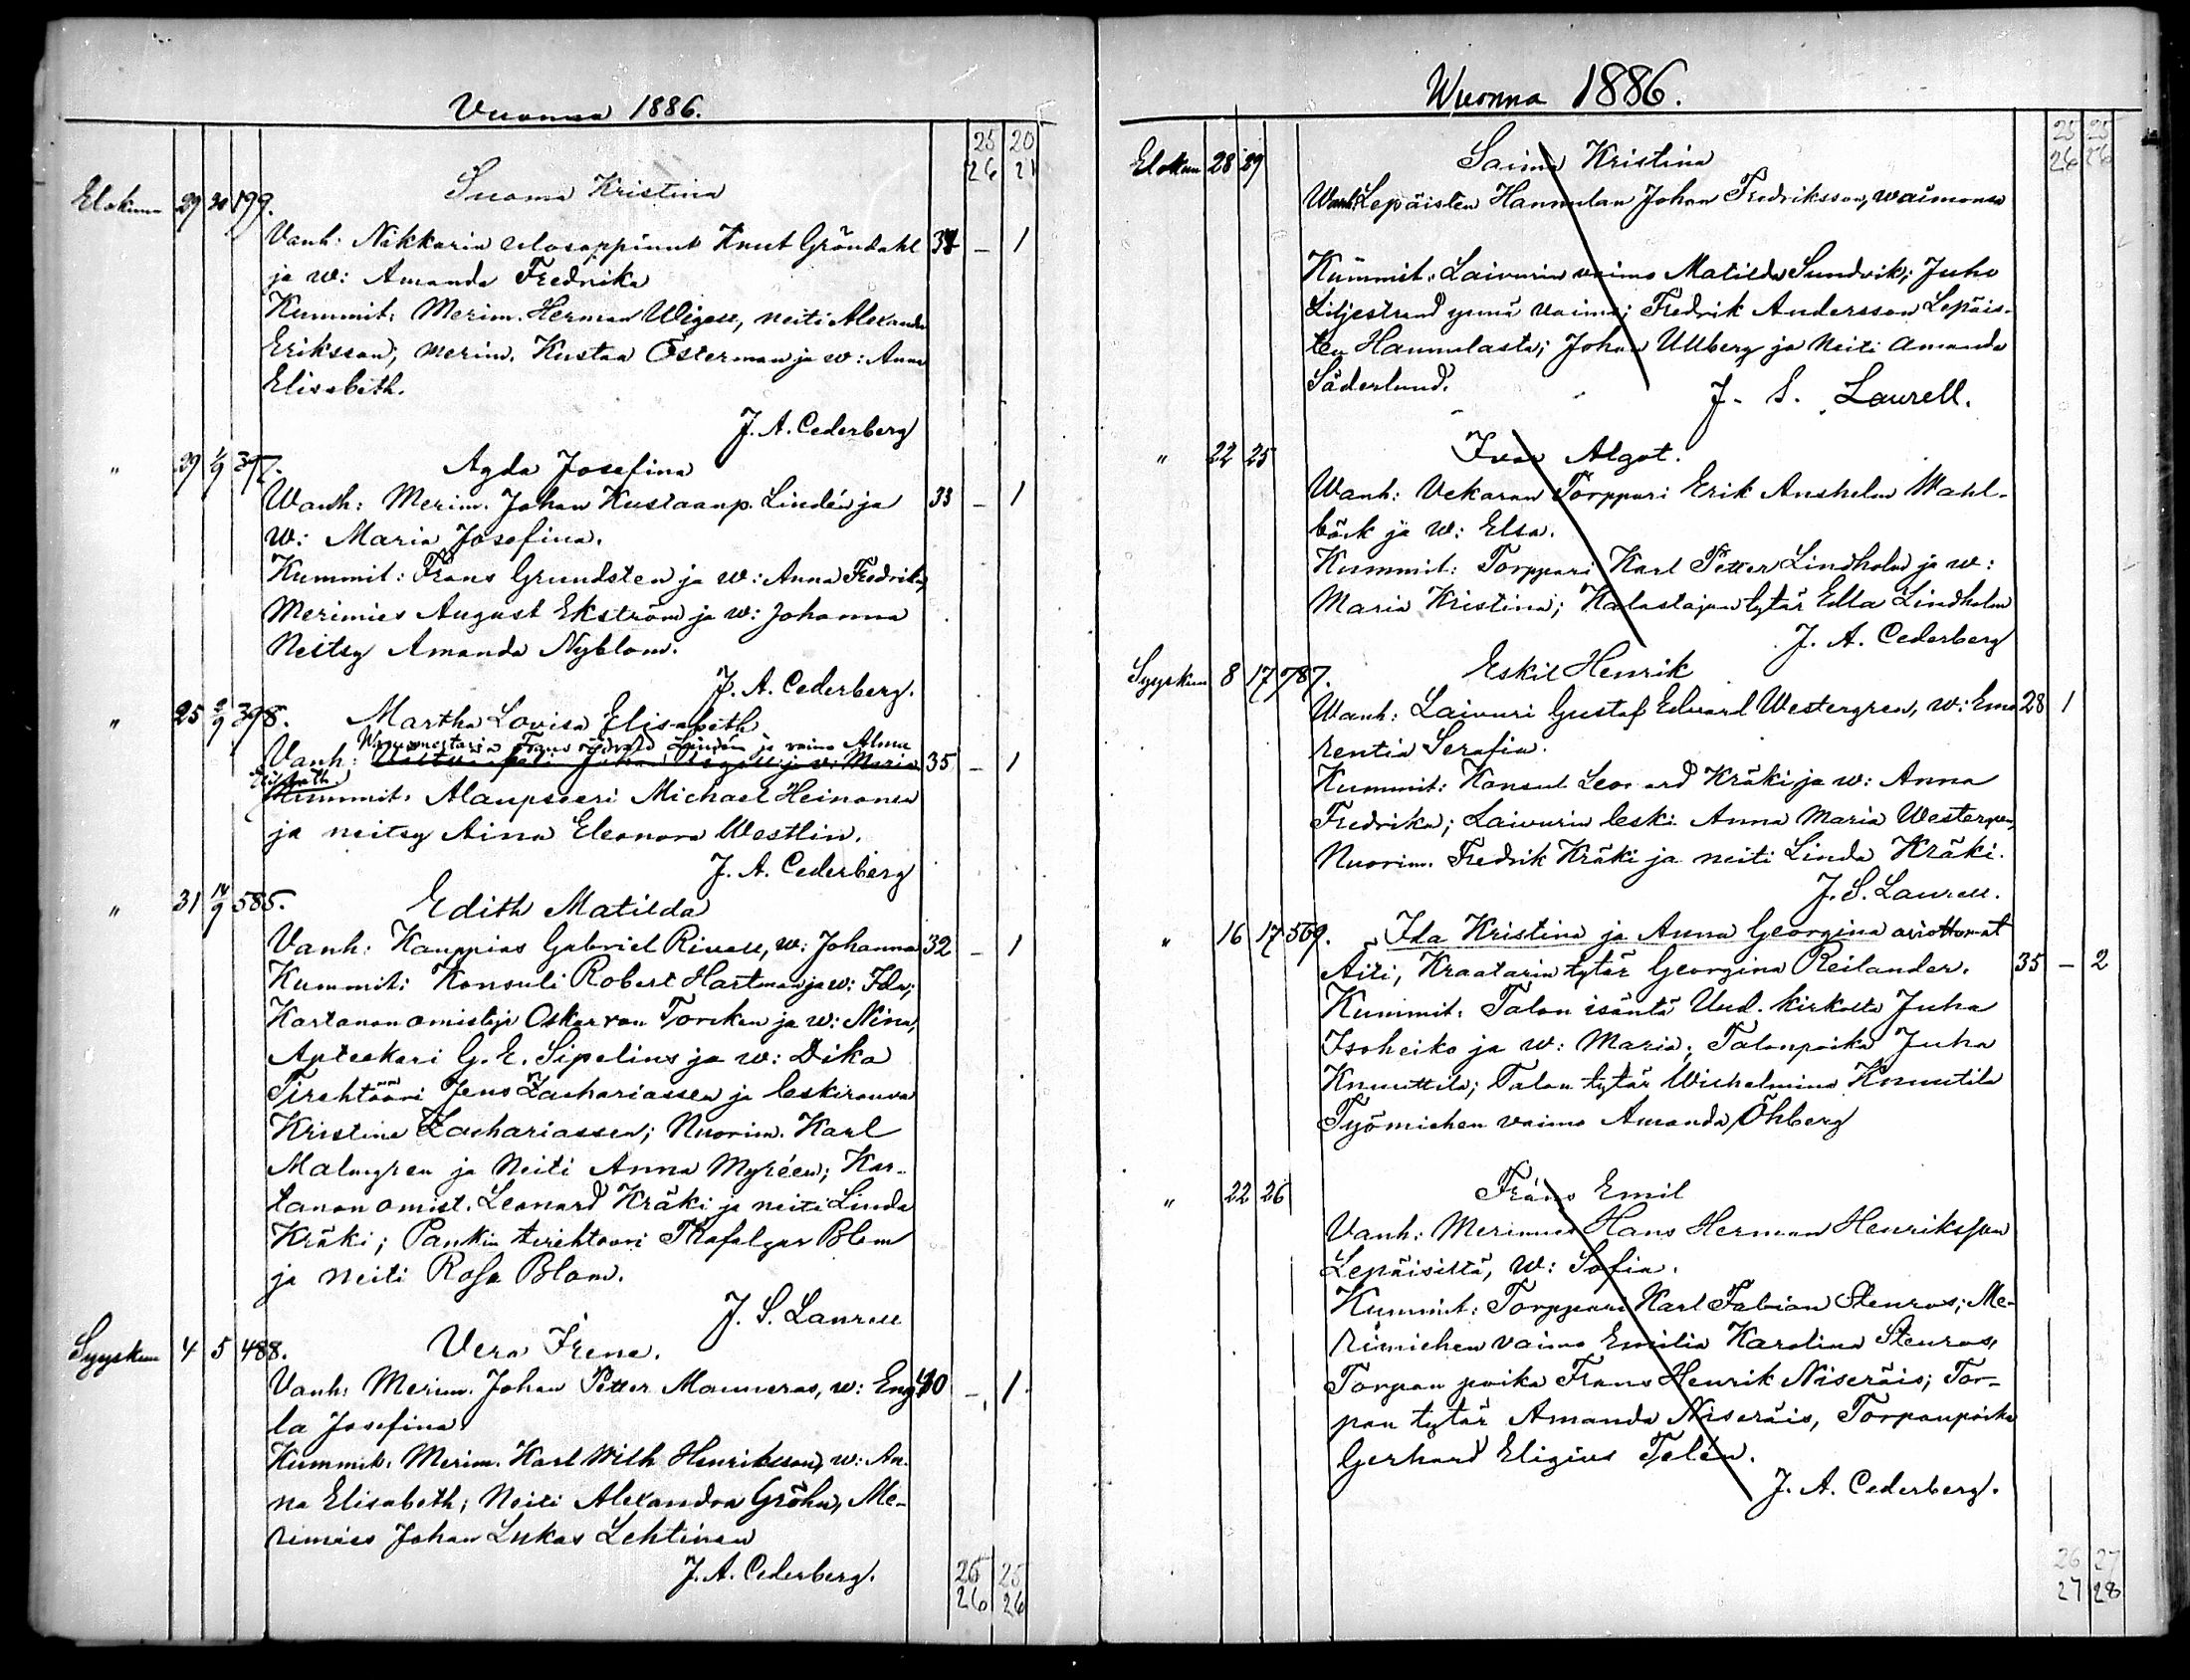 Vuonna 1886.
25 20
26 21
Elokuu 29 30 199. Suoma Kristina
Vanh: Nikkarin ulosoppinut Knut Gröndahl 38 – 1
ja w: Amanda Fredrika
Kummit: Merim. Herman Wigell, neiti Alexandra
Eriksson; merim. Kustaa Österman ja w: Anna
Elisabeth.
J. A. Cederberg
" 29 1/9 397. Agda Josefina
Wanh: Merim. Johan Kustaanp. Lindén ja 33 – 1
w: Maria Josefina.
Kummit: Frans Grundsten ja w: Anna Fredrika,
Merimies August Ekström ja w: Johanna
Neitsy Amanda Nyblom.
J. A. Cederberg.
" 25 2/9 398. Martha Lovisa Elisabeth
Frans Lindén ja vaimo Alma
Vanh: Johan ja w: Maria 35 – 1
Elisabeth.
Kummit: Alaupseeri Michael Heinonen
ja neitsy Aina Eleonora Westlin.
J. A. Cederberg
" 31 14/9 585. Edith Matilda
Vanh: Kauppias Gabriel Rivell, w: Johanna 32 – 1
Kummit: Konsuli Robert Hartman ja w: Ida;
Kartanon omistaja Oskar von Torcken ja w: Nina,
Apteekari G. E. Sipelius ja w: Dika
Tirehtööri Jens Zachariassen ja leskirouva
Kristina Zachariassen; Nuorim. Karl
Malmgren ja Neiti Anna Myréen; Kar-
tanon omist. Leonard Kräki ja neiti Linda
Kräki; Pankin tirehtööri Trafalgar Blom
ja neiti Rosa Blom.
J. S. Laurell
Syyskuu 4 5 488. Vera Irene.
Vanh: Merim. Johan Petter Manneras, w: Eng- 40 – 1
la Josefina
Kummit: Merim. Karl Wilh Henriksson, w: An-
na Elisabeth; Neiti Alexandra Gröhn, Me-
rimies Johan Lukas Lehtinen
J. A. Cederberg.
25 25
26 26
Wuonna 1886.
25 25
26 26
Elokuu 28 29 Saima Kristina
Wanh: Lepäisten Hannulan Johan Fredriksson, waimonsa
Kummit: Laivurin vaimo Matilda Sundvik; Juho
Liljestrand ynnä vaimo; Fredrik Andersson Lepäis-
ten Hannulasta; Johan Ullberg ja Neiti Amanda
Söderlund.
J. S. Laurell.
" 22 25 Ivar Algot.
Wanh: Vekaran Torppari Erik Anshelm Wahl-
bäck ja w: Elsa.
Kummit: Torppari Karl Petter Lindholm ja w:
Maria Kristina; Kalastajan tytär Edla Lindholm
J. A. Cederberg
Syyskuu 8 17 787. Eskil Henrik
Wanh: Laivuri Gustaf Edvard Westergren, w: Eme- 28 1
rentia Serafia.
Kummit: Konsul Leonard Kräki ja w: Anna
Fredrika; Laivurin leski Anna Maria Westergren,
Nuorim. Fredrik Kräki ja neiti Linda Kräki.
J. S. Laurell.
" 16 17 569. Ida Kristina ja Anna Georgina aviottomat
Äiti, Kraatarin tytär Georgina Reilander. 35 – 2
Kummit: Talon isäntä Uud. kirkolta Juha
Isoheiko ja w: Maria; Talonpoika Juha
Knuuttila; Talon tytär Wilhelmina Knuutila
Työmiehen vaimo Amanda Öhberg
" 22 26 Frans Emil
Vanh: Merimies Hans Herman Henriksson
Lepäisiltä, w: Sofia.
Kummit: Torppari Karl Fabian Stenros; Me-
rimiehen vaimo Emilia Karolina Stenros,
Torpan poika Frans Henrik Niseräis; Tor-
pan tytär Amanda Niseräis, Torpanpoika
Gerhard Eligius Telén.
J. A. Cederberg.
26 27
27 28